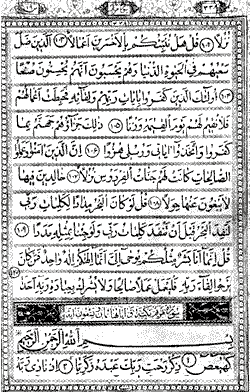 نزلا ١٠٢ قل هل ننبئكم بالاخسرين اعمالا ١٠٣ الذين ضل
سعيهم في الحيوة الدنيا وهم يحسبون انهم يحسنون صنعا
١٠٤ اولئك الذين كفروا بايات ربهم ولقائه فحبطت اعمالهم
فلا نقيم لهم يوم القيمة وزنا ١٠٥ ذلك جزاؤهم جهنم بما
كفروا واتخذوا اياتي ورسلي هزوا ١٠٦ ان الذين امنوا وعملوا
الصالحات كانت لهم جنات الفردوس نزلا ١٠٧ خالدين فيها
لا يبغون عنها حولا ١٠٨ قل لو كان البحر مدادا لكلمات ربي
لنفد البحر قبل ان تنفد كلمات ربي ولو جئنا بمثله مددا ١٠٩
قل انما انا بشر مثلكم يوحى الي انما الهكم اله واحد فمن كان
يرجوا لقاء ربه فليعمل عملا صالحا ولا يشرك بعبادة ربه احدا ١١٠
بسم الله الرحمن الرحيم
كهيعص ١ ذكر رحمت ربك عبده زكريا ٢ اذ نادى ربه